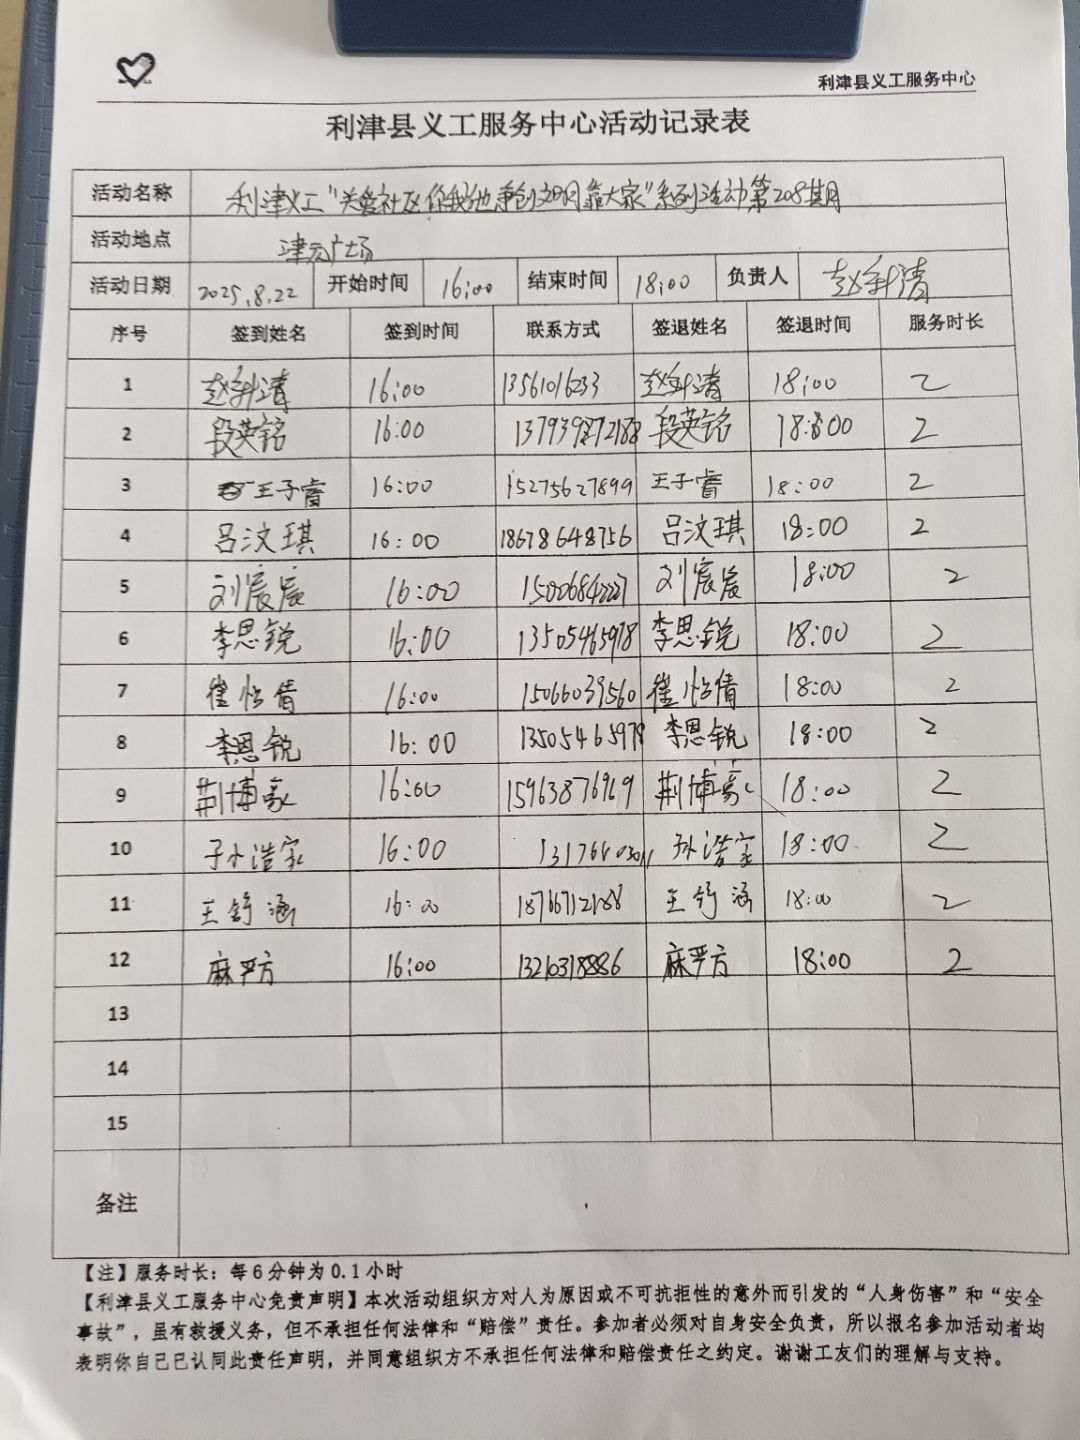 利津县义工服务中心
利津县义工服务中心活动记录表
活动名称 利津义工"关爱社区 你我他 靠大家"系列活动第208期
活动地点 津云广场
活动日期 2025.8.22 开始时间 16:00 结束时间 18:00 负责人 赵 清
序号 签到姓名 签到时间 联系方式 签退姓名 签退时间 服务时长
1 16:00 13561016233 18:00 2
2 段英铭 16:00 段英铭 18:00 2
3 王子睿 16:00 15275627899 王子睿 18:00 2
4 吕汶琪 16:00 18678648756 吕汶琪 18:00 2
5 刘宸宸 16:00 刘宸宸 18:00 2
6 李思锐 16:00 13505465978 李思锐 18:00 2
7 崔怡倩 16:00 15066039560 崔怡倩 18:00 2
8 李恩锐 16:00 13505465978 李恩锐 18:00 2
9 荆博豪 16:00 15963876969 荆博豪 18:00 2
10 孙浩家 16:00 孙浩家 18:00 2
11 王舒涵 16:00 王舒涵 18:00 2
12 麻严方 16:00 13210318886 麻严方 18:00 2
13
14
15
备注
【注】服务时长：每6分钟为0.1小时
【利津县义工服务中心免责声明】本次活动组织方对人为原因或不可抗担性的意外而引发的“人身伤害”和“安全
事故”，虽有救援义务，但不承担任何法律和“赔偿”责任。参加者必须对自身安全负责，所以报名参加活动者均
表明你自己已认同此责任声明，并同意组织方不承担任何法律和赔偿责任之约定。谢谢工友们的理解与支持。